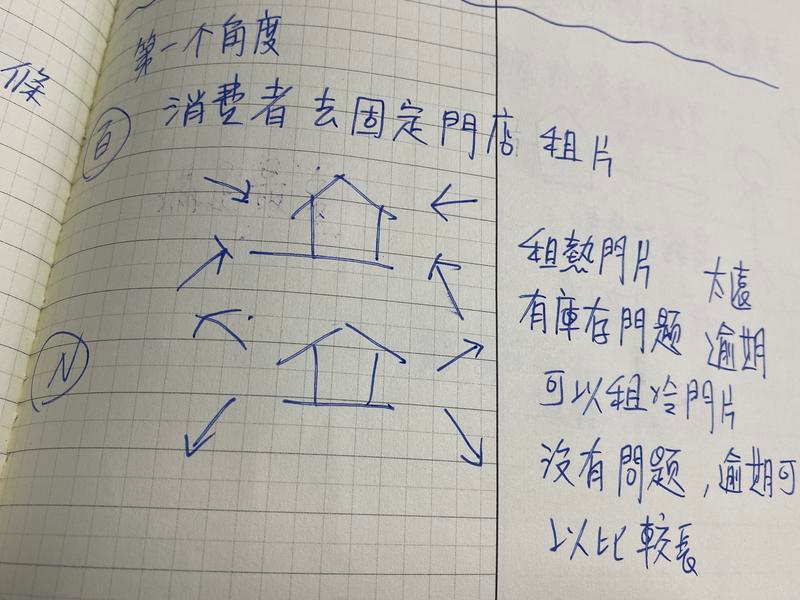 第一个角度
條
百 消費者去固定門店租片
N
租熱門片 太遠
有庫存問題 逾期
可以租冷門片
沒有問題,逾期可
以比較長